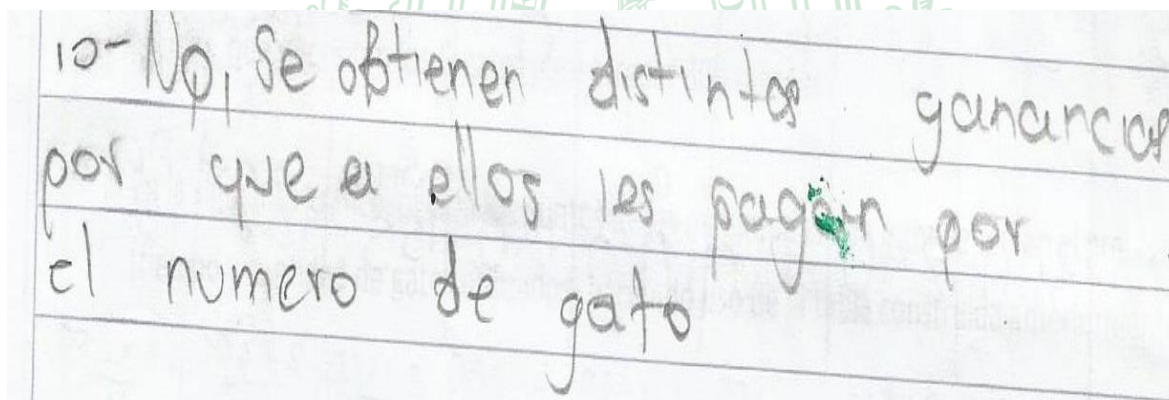 10- No, Se obtienen distintas ganancias
por que a ellos les pagan por
el numero de gato